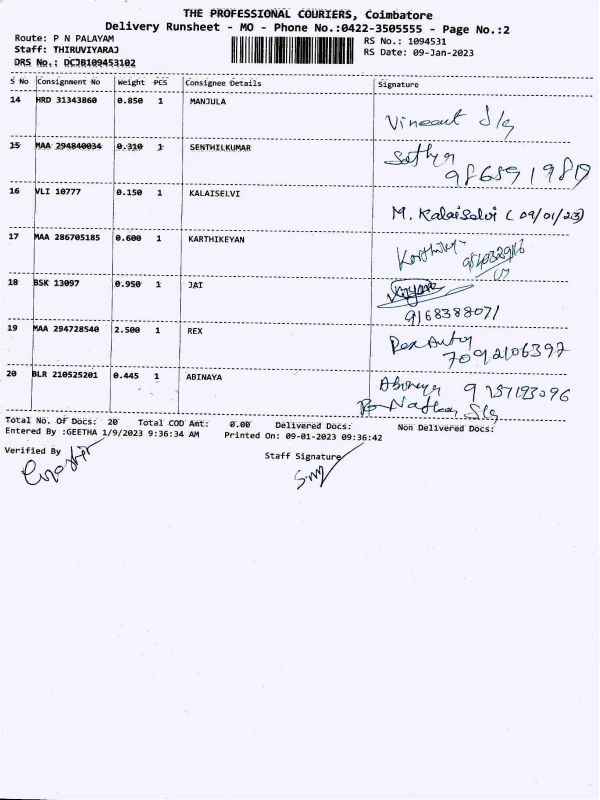 THE PROFESSIONAL COURIERS, Coimbatore
Delivery Runsheet - MO - Phone No.:0422-3505555 - Page No.:2
Route: P N PALAYAM
RS No.: 1094531
Staff: THIRUVIYARAJ
RS Date: 09-Jan-2023
DRS No.: DCJB109453102
S No Consignment No Weight PCS Consignee Details Signature
14 HRD 31343860 0.850 1 MANJULA
Vincent S/g
15 MAA 294840034 0.310 1 SENTHILKUMAR
Sathya
16 VLI 10777 0.150 1 KALAISELVI
M. Kalaiselvi (09/01/23)
17 MAA 286705185 0.600 1 KARTHIKEYAN
18 BSK 13097 0.950 1 JAI
9168388071
19 MAA 294728540 2.500 1 REX
7092106397
20 BLR 210525201 0.445 1 ABINAYA
Abinaya
Total No. Of Docs: 20 Total COD Amt: 0.00 Delivered Docs: Non Delivered Docs:
Entered By :GEETHA 1/9/2023 9:36:34 AM Printed On: 09-01-2023 09:36:42
Verified By
Staff Signature